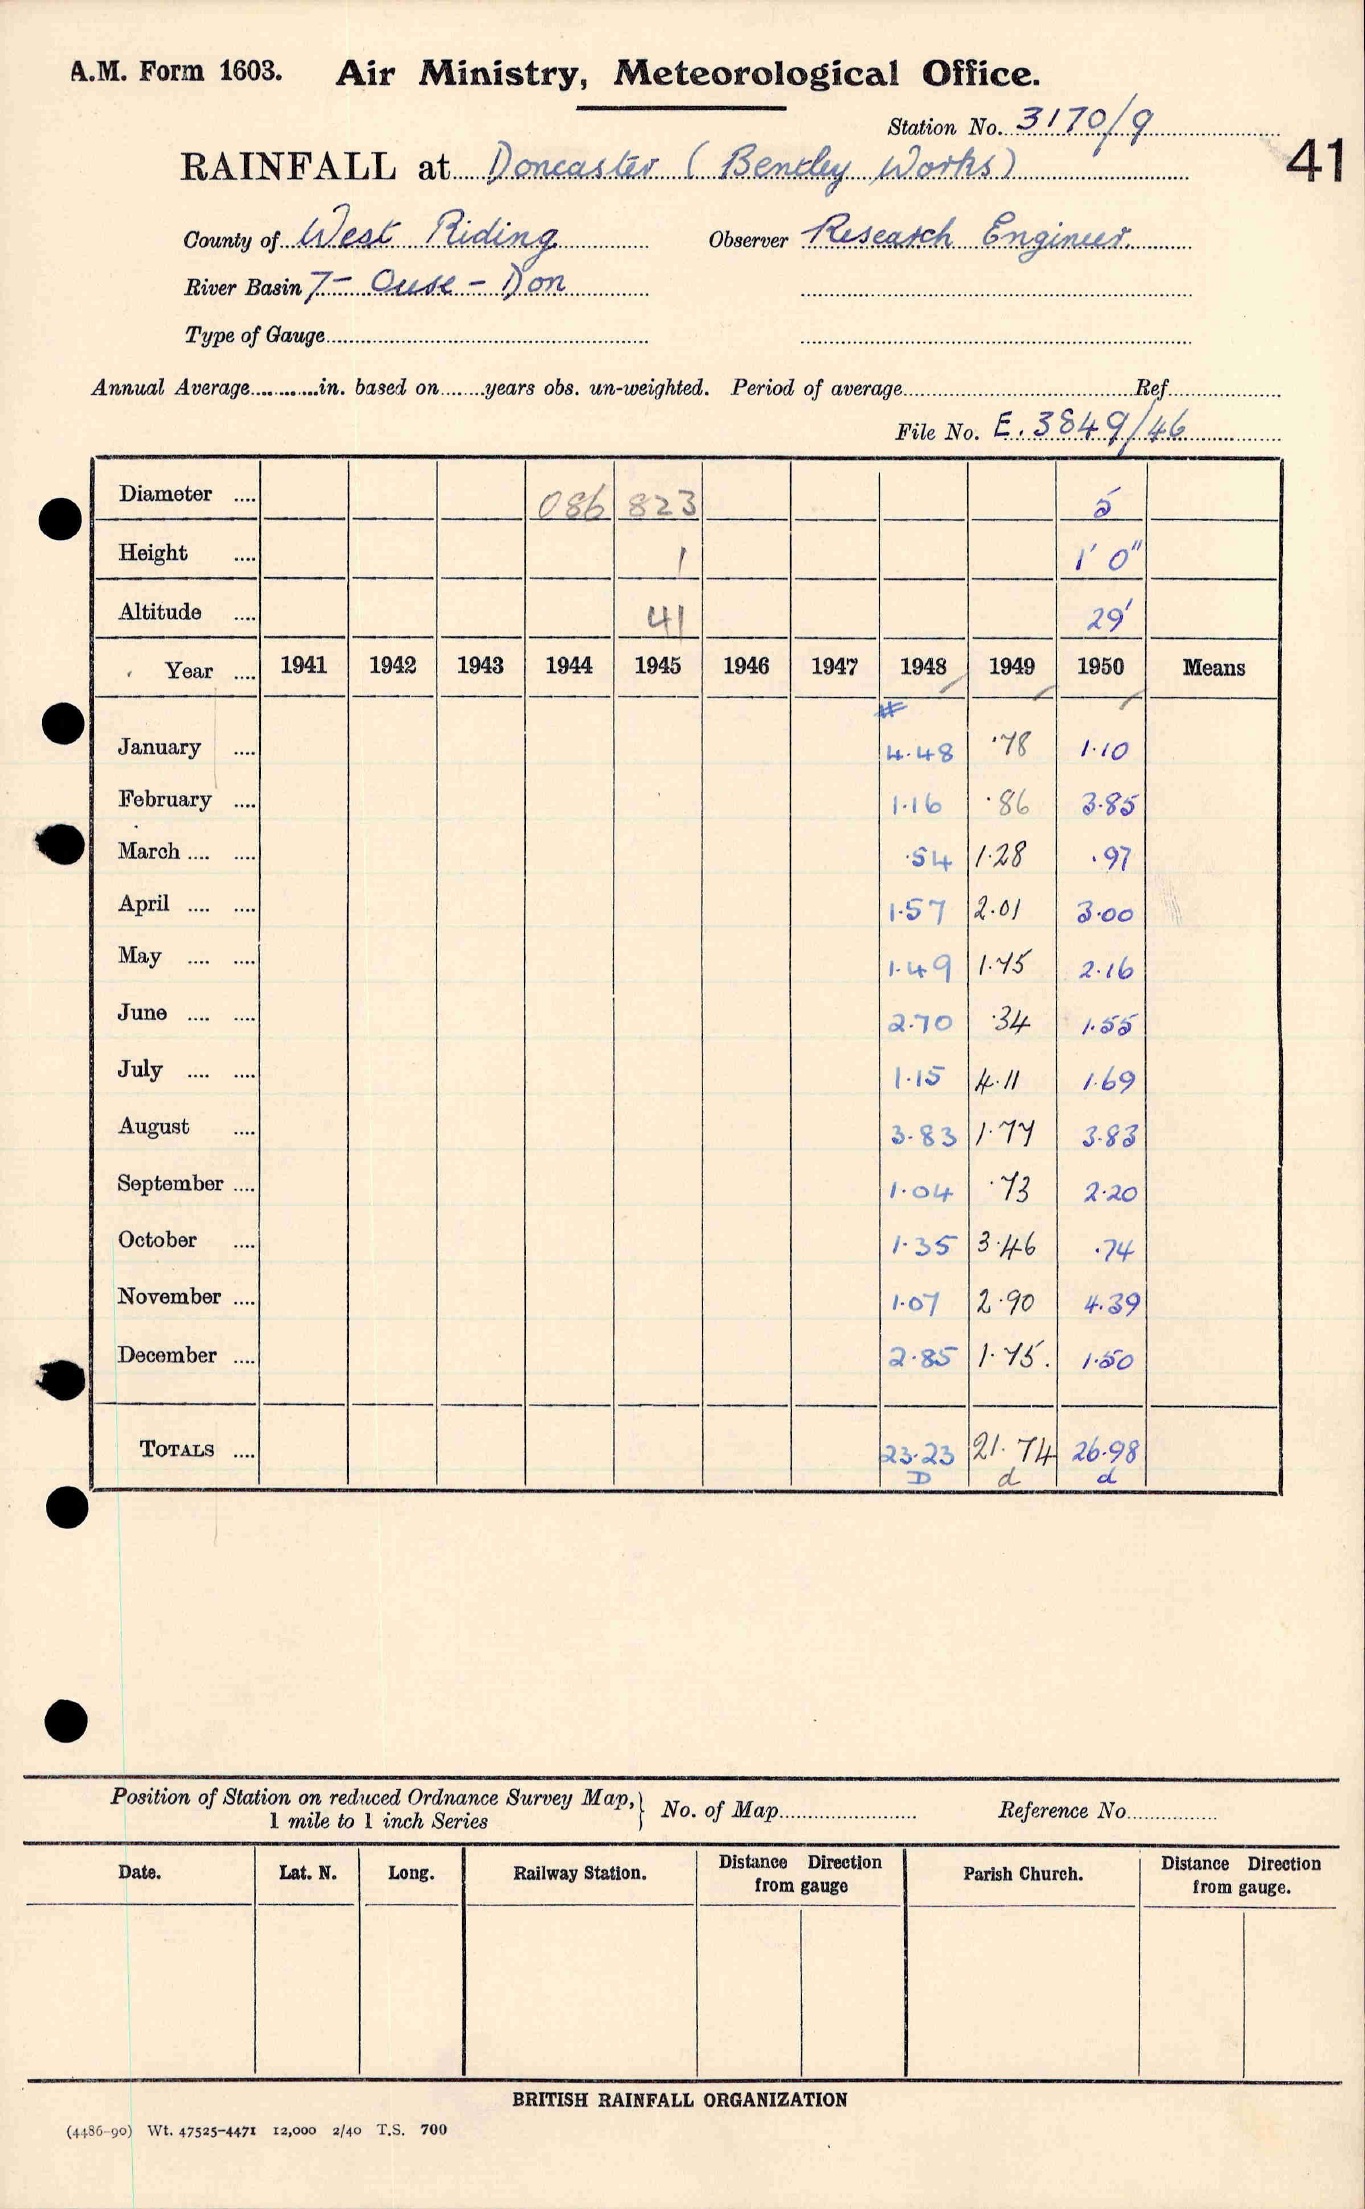 A.M. Form 1603. Air Ministry, Meteorological Office.
Station No. 3170/9
41
RAINFALL at Doncaster (Bentley Works)
County of West Riding Observer Research Engineer.
River Basin 7- Ouse - Don
Type of Gauge
Annual Average............in. based on.......years obs. un-weighted. Period of average Ref
File No. E.3849/46
Diameter .... 086 823 5
Height .... 1 1' 0"
Altitude .... 41 29'
Year .... 1941 1942 1943 1944 1945 1946 1947 1948 1949 1950 Means
#
January .... 4.48 .78 1.10
February .... 1.16 .86 3.85
March .... .... .54 1.28 .97
April .... .... 1.57 2.01 3.00
May .... .... 1.49 1.75 2.16
June .... .... 2.70 .34 1.55
July .... .... 1.15 4.11 1.69
August .... 3.83 1.77 3.83
September .... 1.04 .73 2.20
October .... 1.35 3.46 .74
November .... 1.07 2.90 4.39
December .... 2.85 1.75. 1.50
TOTALS .... 23.23 21.74 26.98
D d d
Position of Station on reduced Ordnance Survey Map, } No. of Map Reference No.
1 mile to 1 inch Series
Date. Lat. N. Long. Railway Station. Distance Direction from gauge Parish Church. Distance Direction from gauge.
BRITISH RAINFALL ORGANIZATION
(4486-90) Wt. 47525-4471 12,000 2/40 T.S. 700